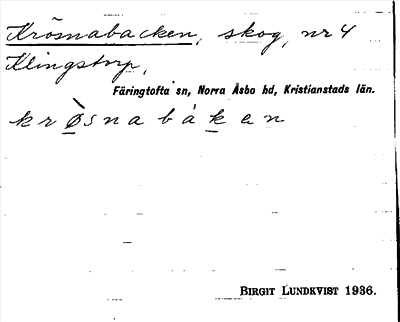 Krösnabacken, skog, nr 4
Klingstorp,
Färingtofta sn, Norra Åsbo hd, Kristianstads län.
krø̀snabákan
BIRGIT LUNDKVIST 1936.